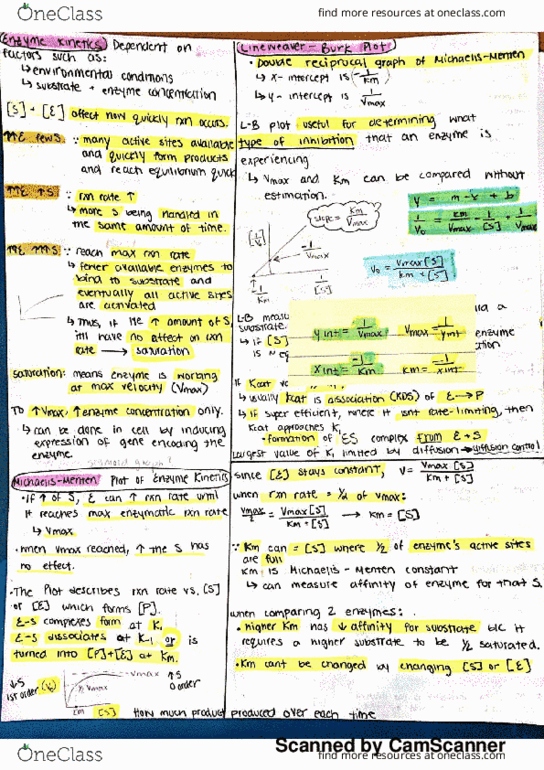 OneClass
find more resources at oneclass.com
Enzyme Kinetics Dependent on
factors such as:
↳ environmental conditions
↳ substrate + enzyme concentration
[S] + [E] affect how quickly rxn occurs.
↑↑E few S ∵ many active sites available
and quickly form products
and reach equilibrium quick
↑↑E ↑S ∵ rxn rate ↑
↳ more S being handled in
the same amount of time.
↑↑E ↑↑↑S ∵ reach max rxn rate
↳ fewer available enzymes to
bind to substrate and
eventually all active sites
are activated
↳ Thus, if the ↑ amount of S,
it'll have no effect on rxn
rate → saturation
saturation: means enzyme is working
at max velocity (Vmax)
To ↑Vmax, ↑enzyme concentration only.
↳ can be done in cell by inducing
expression of gene encoding the
enzyme.
Michaelis-Menten Plot of Enzyme Kinetics
• If ↑ of S, E can ↑ rxn rate until
it reaches max enzymatic rxn rate
↳ Vmax
• when Vmax reached, ↑ the S has
no effect.
• The Plot describes rxn rate vs. [S]
or [E] which forms [P].
E-S complexes form at K1
E-S dissociates at K-1 or is
turned into [P]+[E] at Km.
↓S
1st order (V0)
Vmax ↑S
0 order
½ Vmax
Km [S] How much product produced over each time
Lineweaver-Burk Plot
• Double reciprocal graph of Michaelis-Menten
↳ x-intercept is (-1/Km)
↳ y-intercept is 1/Vmax
L-B plot useful for determining what
type of inhibition that an enzyme is
experiencing
↳ Vmax and Km can be compared without
estimation.
y = m·x + b
1/V0 = Km/Vmax · 1/[S] + 1/Vmax
slope = Km/Vmax
1/V0
-1/Vmax
1/Km
1/[S]
V0 = Vmax[S]/Km+[S]
L-B measu
substrate.
enzyme
↳ if [S]
y int = 1/Vmax Vmax = 1/y int
x int = -1/Km Km = -1/x int
If Kcat v
↳ usually Kcat is association (KDS) of E→P
↳ if super efficient, where it isn't rate-limiting, then
Kcat approaches K1
• formation of ES complex from E+S
largest value of K1 limited by diffusion → diffusion control
since [E] stays constant, V = Vmax[S]/Km+[S]
when rxn rate = ½ of Vmax:
Vmax/2 = Vmax[S]/Km+[S] → Km = [S]
∵ Km can = [S] where ½ of enzyme's active sites
are full
Km is Michaelis-Menten constant
↳ can measure affinity of enzyme for that S.
when comparing 2 enzymes:
• higher Km has ↓ affinity for substrate b/c it
requires a higher substrate to be ½ saturated.
• Km can't be changed by changing [S] or [E]
Scanned by CamScanner
OneClass
find more resources at oneclass.com